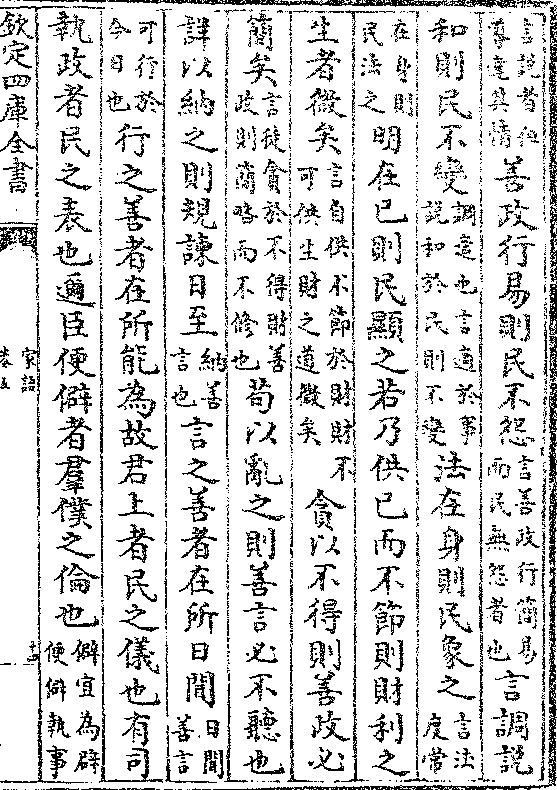 言說者但
尊達其情
善政行易則民不怨
言善政行簡易
而民無怨者也
言調說
和則民不變
調適也言適於事
說和於民則不變
法在身則民象之
言法
度常
在身則
民法之
明在己則民顯之若乃供己而不節則財利之
生者微矣
言自供不節於財財不
可供生財之道微矣
貪以不得則善政必
簡矣
言徒貪於不得財善
政則簡略而不修也
苟以亂之則善言必不聽也
詳以納之則規諫日至
納善
言也
言之善者在所日聞
日聞
善言
可行於
今日也
行之善者在所能為故君上者民之儀也有司
執政者民之表也邇臣便僻者羣僕之倫也
僻宜為辟
便僻執事
欽定四庫全書
家語
卷五